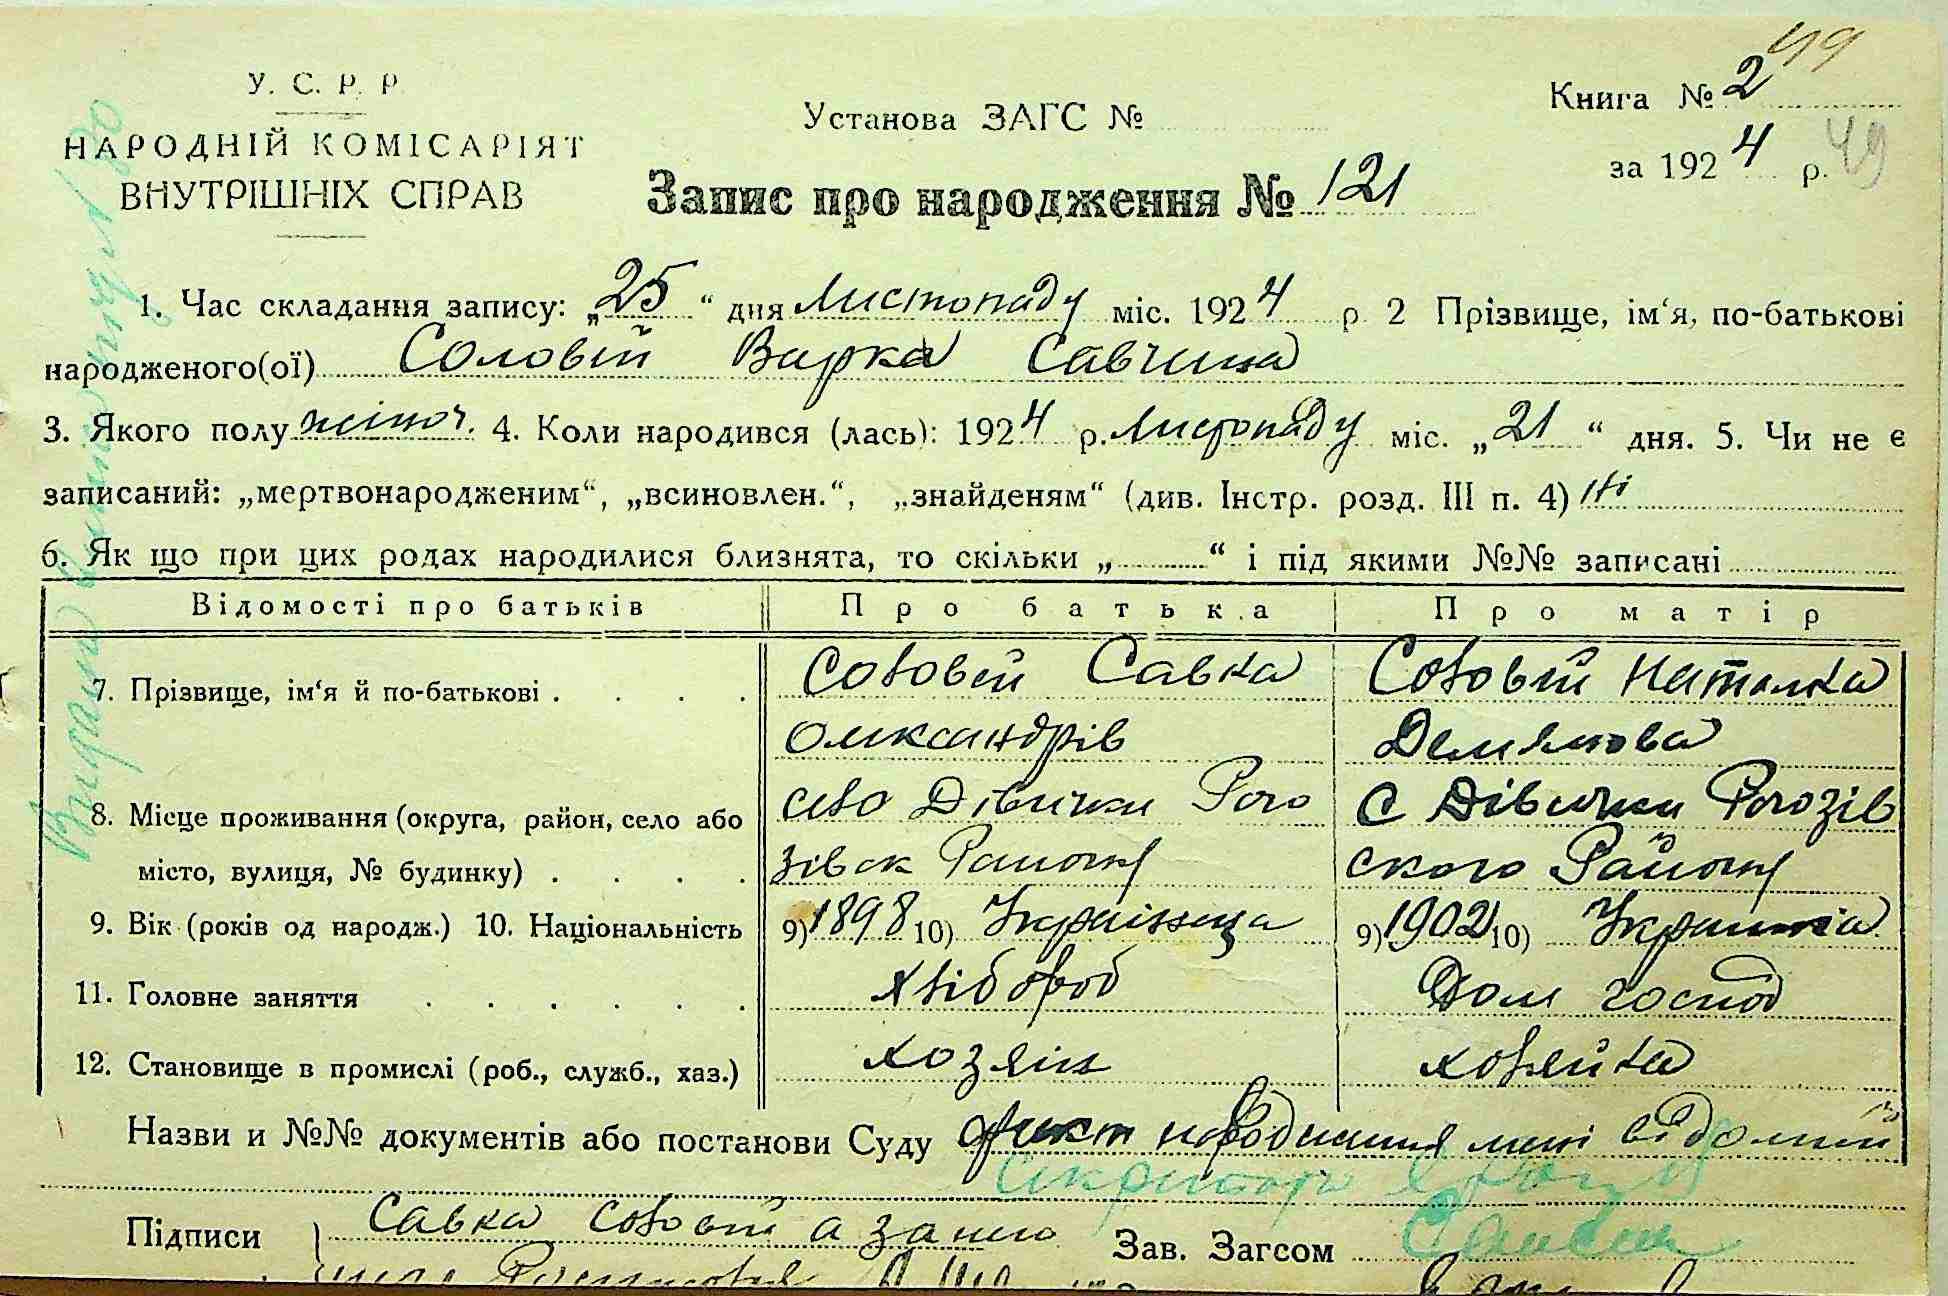 49
У. С. Р. Р.
НАРОДНІЙ КОМІСАРІЯТ
ВНУТРІШНІХ СПРАВ
Установа ЗАГС №
Книга № 2
за 1924 р. 49
Запис про народження № 121
1. Час складання запису: „25“ дня Листопаду міс. 1924 р 2 Прізвище, ім‘я, по-батькові
народженого(ої) Соловій Варка Савчина
3. Якого полу жіноч. 4. Коли народився (лась): 1924 р. Листопаду міс. „21“ дня. 5. Чи не є
записаний: „мертвонародженим“, „всиновлен.“, „знайденям“ (див. Інстр. розд. III п. 4) Ні
6. Як що при цих родах народилися близнята, то скільки „ “ і під якими №№ записані
Відомості про батьків Про батька Про матір
7. Прізвище, ім‘я й по-батькові . . . . Соловій Савка Соловій Наталка
Олександрів Демянова
8. Місце проживання (округа, район, село або село Дівички Рого С Дівички Рогозів
місто, вулиця, № будинку) . . . . зівск Району ского Району
9. Вік (років од народж.) 10. Національність 9) 1898 10) Українець 9) 1902 10) Українка
11. Головне заняття . . . . . . хлібороб Дом господ
12. Становище в промислі (роб., служб., хаз.) хозяін хозяйка
Назви и №№ документів або постанови Суду факт народження мині відомий
Секретарь
Підписи Савка Соловій а за него Зав. Загсом